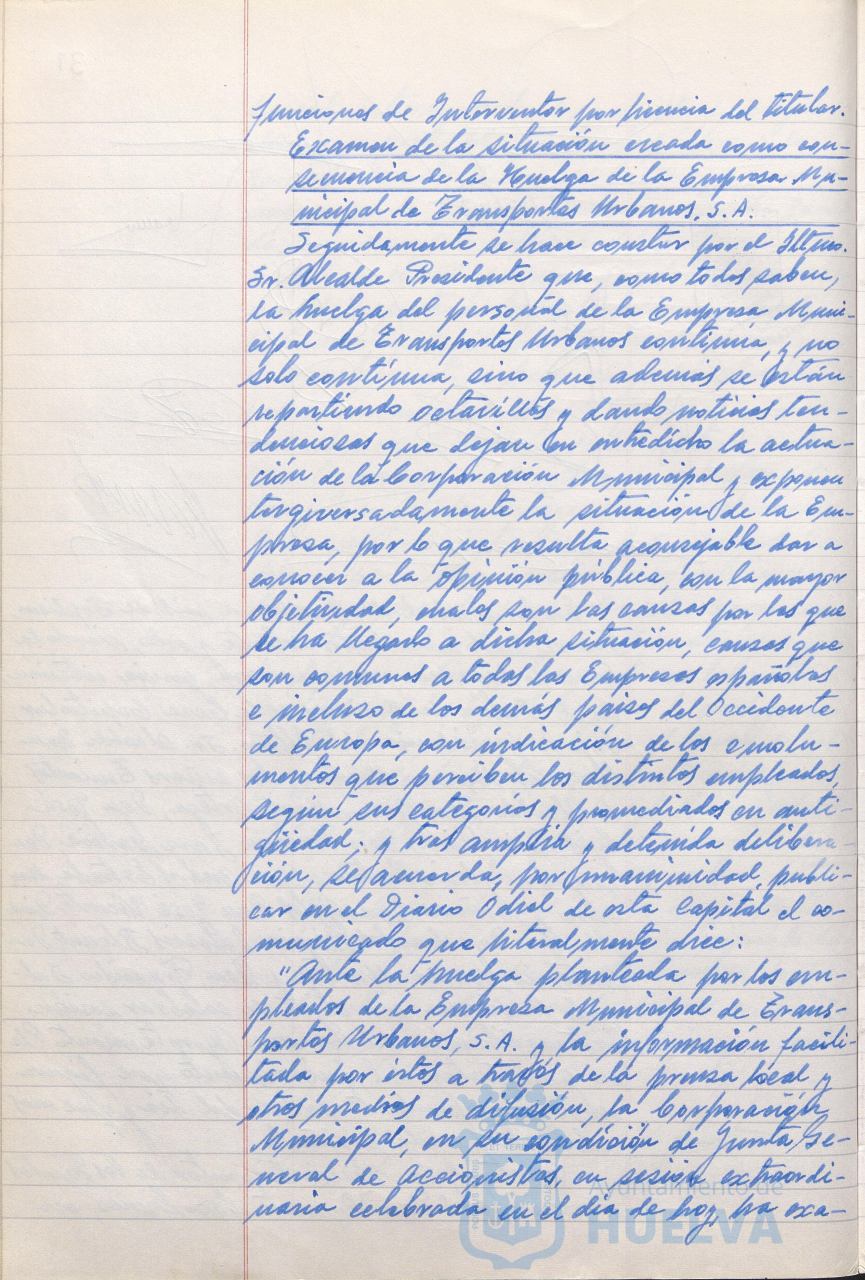 funciones de Interventor por licencia del titular.
Examen de la situación creada como con-
secuencia de la Huelga de la Empresa Mu-
nicipal de Transportes Urbanos, S.A.
Seguidamente se hace constar por el Iltmo.
Sr. Alcalde Presidente que, como todos saben,
la huelga del personal de la Empresa Muni-
cipal de Transportes Urbanos continúa, y no
solo continua, sino que además se están
repartiendo octavillas y dando noticias ten-
denciosas que dejan en entredicho la actua-
ción de la Corporación Municipal y exponen
tergiversadamente la situación de la Em-
presa, por lo que resulta aconsejable dar a
conocer a la opinión pública, con la mayor
objetividad, cuales son las causas por las que
se ha llegado a dicha situación, causas que
son comunes a todas las Empresas españolas
e incluso de los demás países del Occidente
de Europa, con indicación de los emolu-
mentos que perciben los distintos empleados,
según sus categorías y promediados en anti-
güedad; y tras amplia y detenida delibera-
ción, se acuerda, por unanimidad, publi-
car en el Diario Odiel de esta Capital el co-
municado que literalmente dice:
"Ante la huelga planteada por los em-
pleados de la Empresa Municipal de Trans-
portes Urbanos, S.A. y la información facili-
tada por éstos a través de la prensa local y
otros medios de difusión, la Corporación
Municipal, en su condición de Junta Ge-
neral de Accionistas, en sesión extraordi-
naria celebrada en el día de hoy, ha exa-
Ayuntamiento de
HUELVA